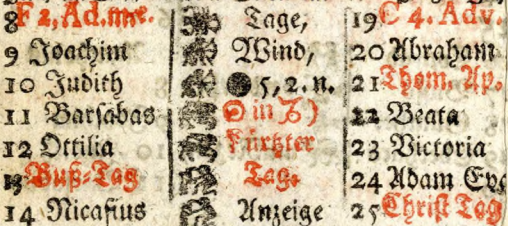 8 F 2, Ad.
9 Joachim
10 Judith
11 Barsabas
12 Ottilia
13 Buß-Tag
14 Nicasius
Tage,
Wind,
● 5, 2. n.
☉ in ♑)
kürtzter
Tag.
Anzeige
19 C 4. Adv.
20 Abraham
21 Thom. Ap.
22 Beata
23 Victoria
24 Adam Ev
25 Christ Tag